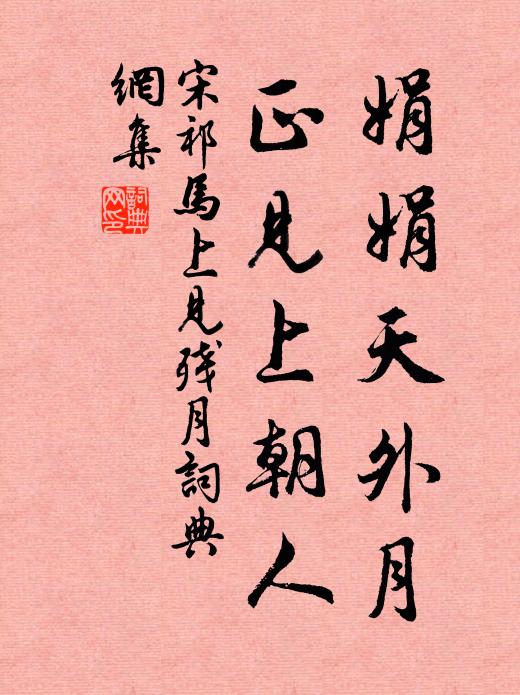 娟娟天外月
正見上朝人
宋祁馬上見残月詞典
網集
詞典网印